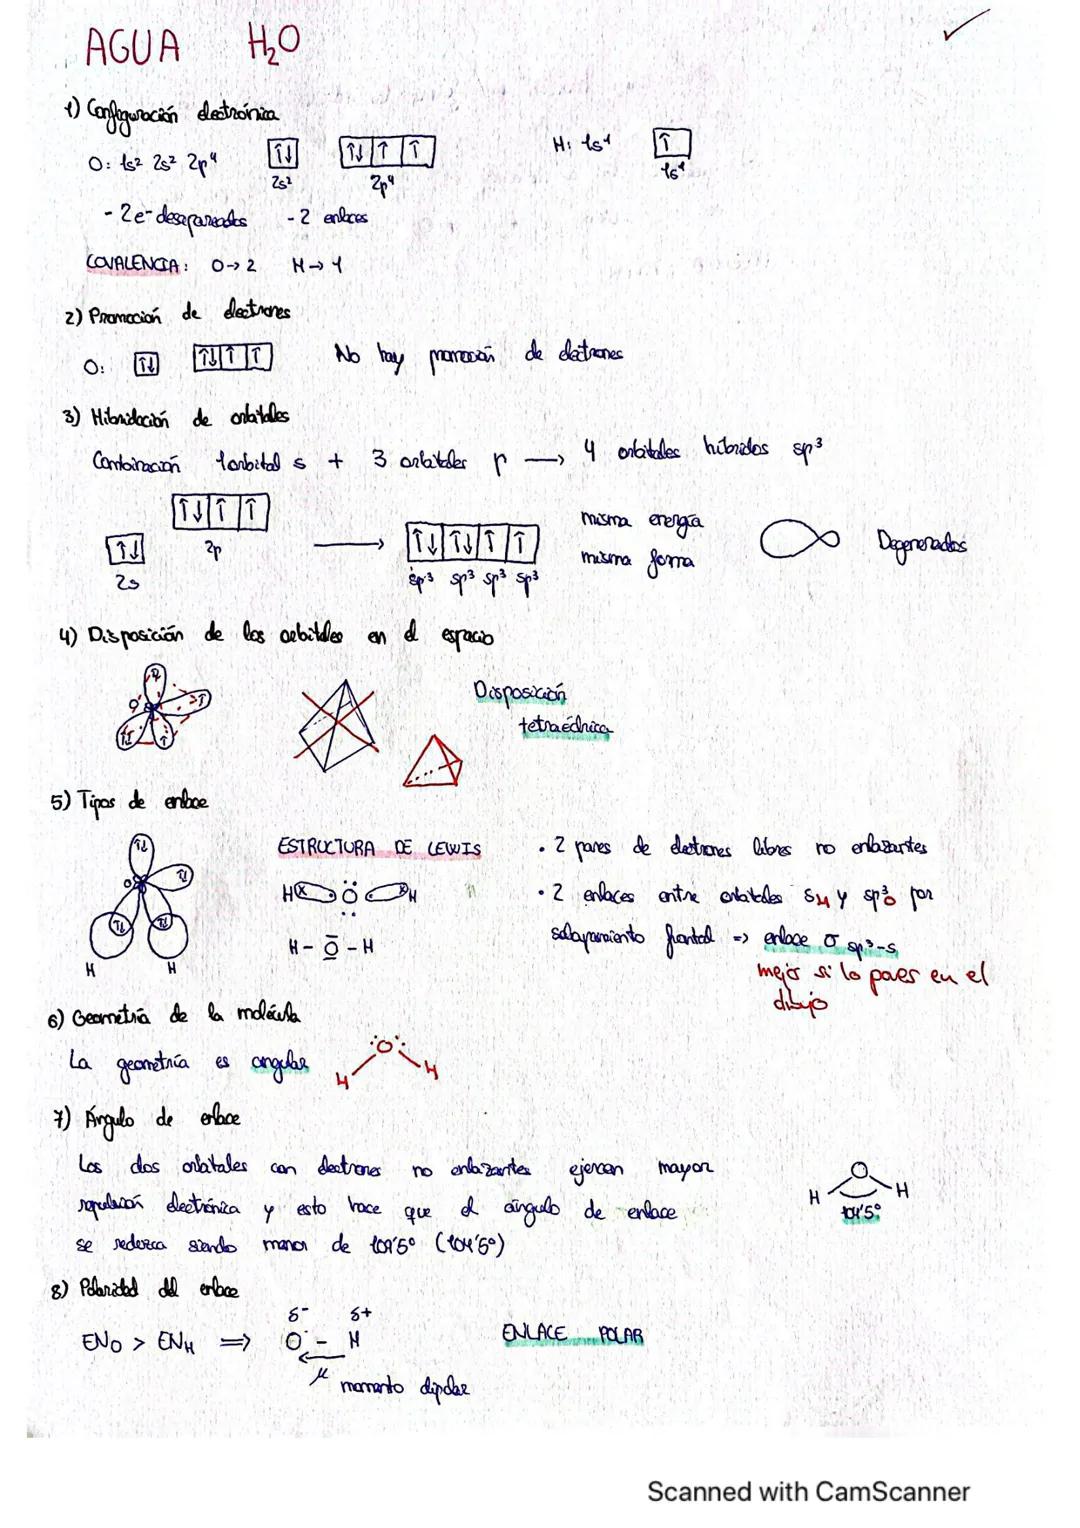 AGUA H₂O
1) Configuración electrónica
O: 1s² 2s² 2p⁴ ↑↓ ↑↓ ↑ ↑ H: 1s¹ ↑
2s² 2p⁴ 1s¹
- 2e⁻ desapareados - 2 enlaces
COVALENCIA: O→2 H→1
2) Promoción de electrones
O: ↑↓ ↑↓ ↑ ↑ No hay promoción de electrones
3) Hibridación de orbitales
Combinación 1 orbital s + 3 orbitales p → 4 orbitales híbridos sp³
↑↓ ↑ ↑ misma energía
↑↓ 2p → ↑↓ ↑↓ ↑ ↑ misma forma Degenerados
2s sp³ sp³ sp³ sp³
4) Disposición de los orbitales en el espacio
Disposición
tetraédrica
5) Tipos de enlace
ESTRUCTURA DE LEWIS · 2 pares de electrones libres no enlazantes
H x O x H · 2 enlaces entre orbitales s_H y sp³_O por
H - O - H solapamiento frontal => enlace σ sp³-s
H H mejor si lo pones en el
dibujo
6) Geometría de la molécula
La geometría es angular O
H H
7) Ángulo de enlace
Los dos orbitales con electrones no enlazantes ejercen mayor O
repulsión electrónica y esto hace que el ángulo de enlace H H
104'5°
se reduzca siendo menor de 109'5° (104'5°)
8) Polaridad del enlace
δ- δ+
EN_O > EN_H ⇒ O - H ENLACE POLAR
μ momento dipolar
Scanned with CamScanner